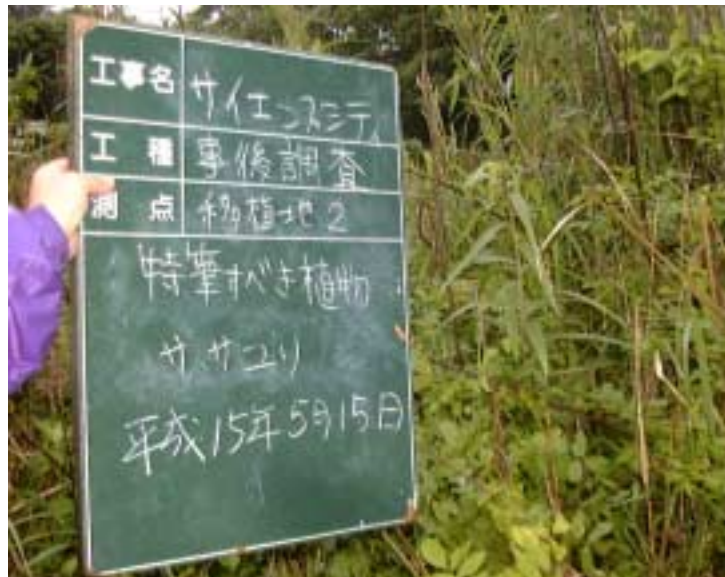 工事名 サイエンスシティ
工種 事後調査
測点 移植地2
特筆すべき植物
ササユリ
平成15年5月15日